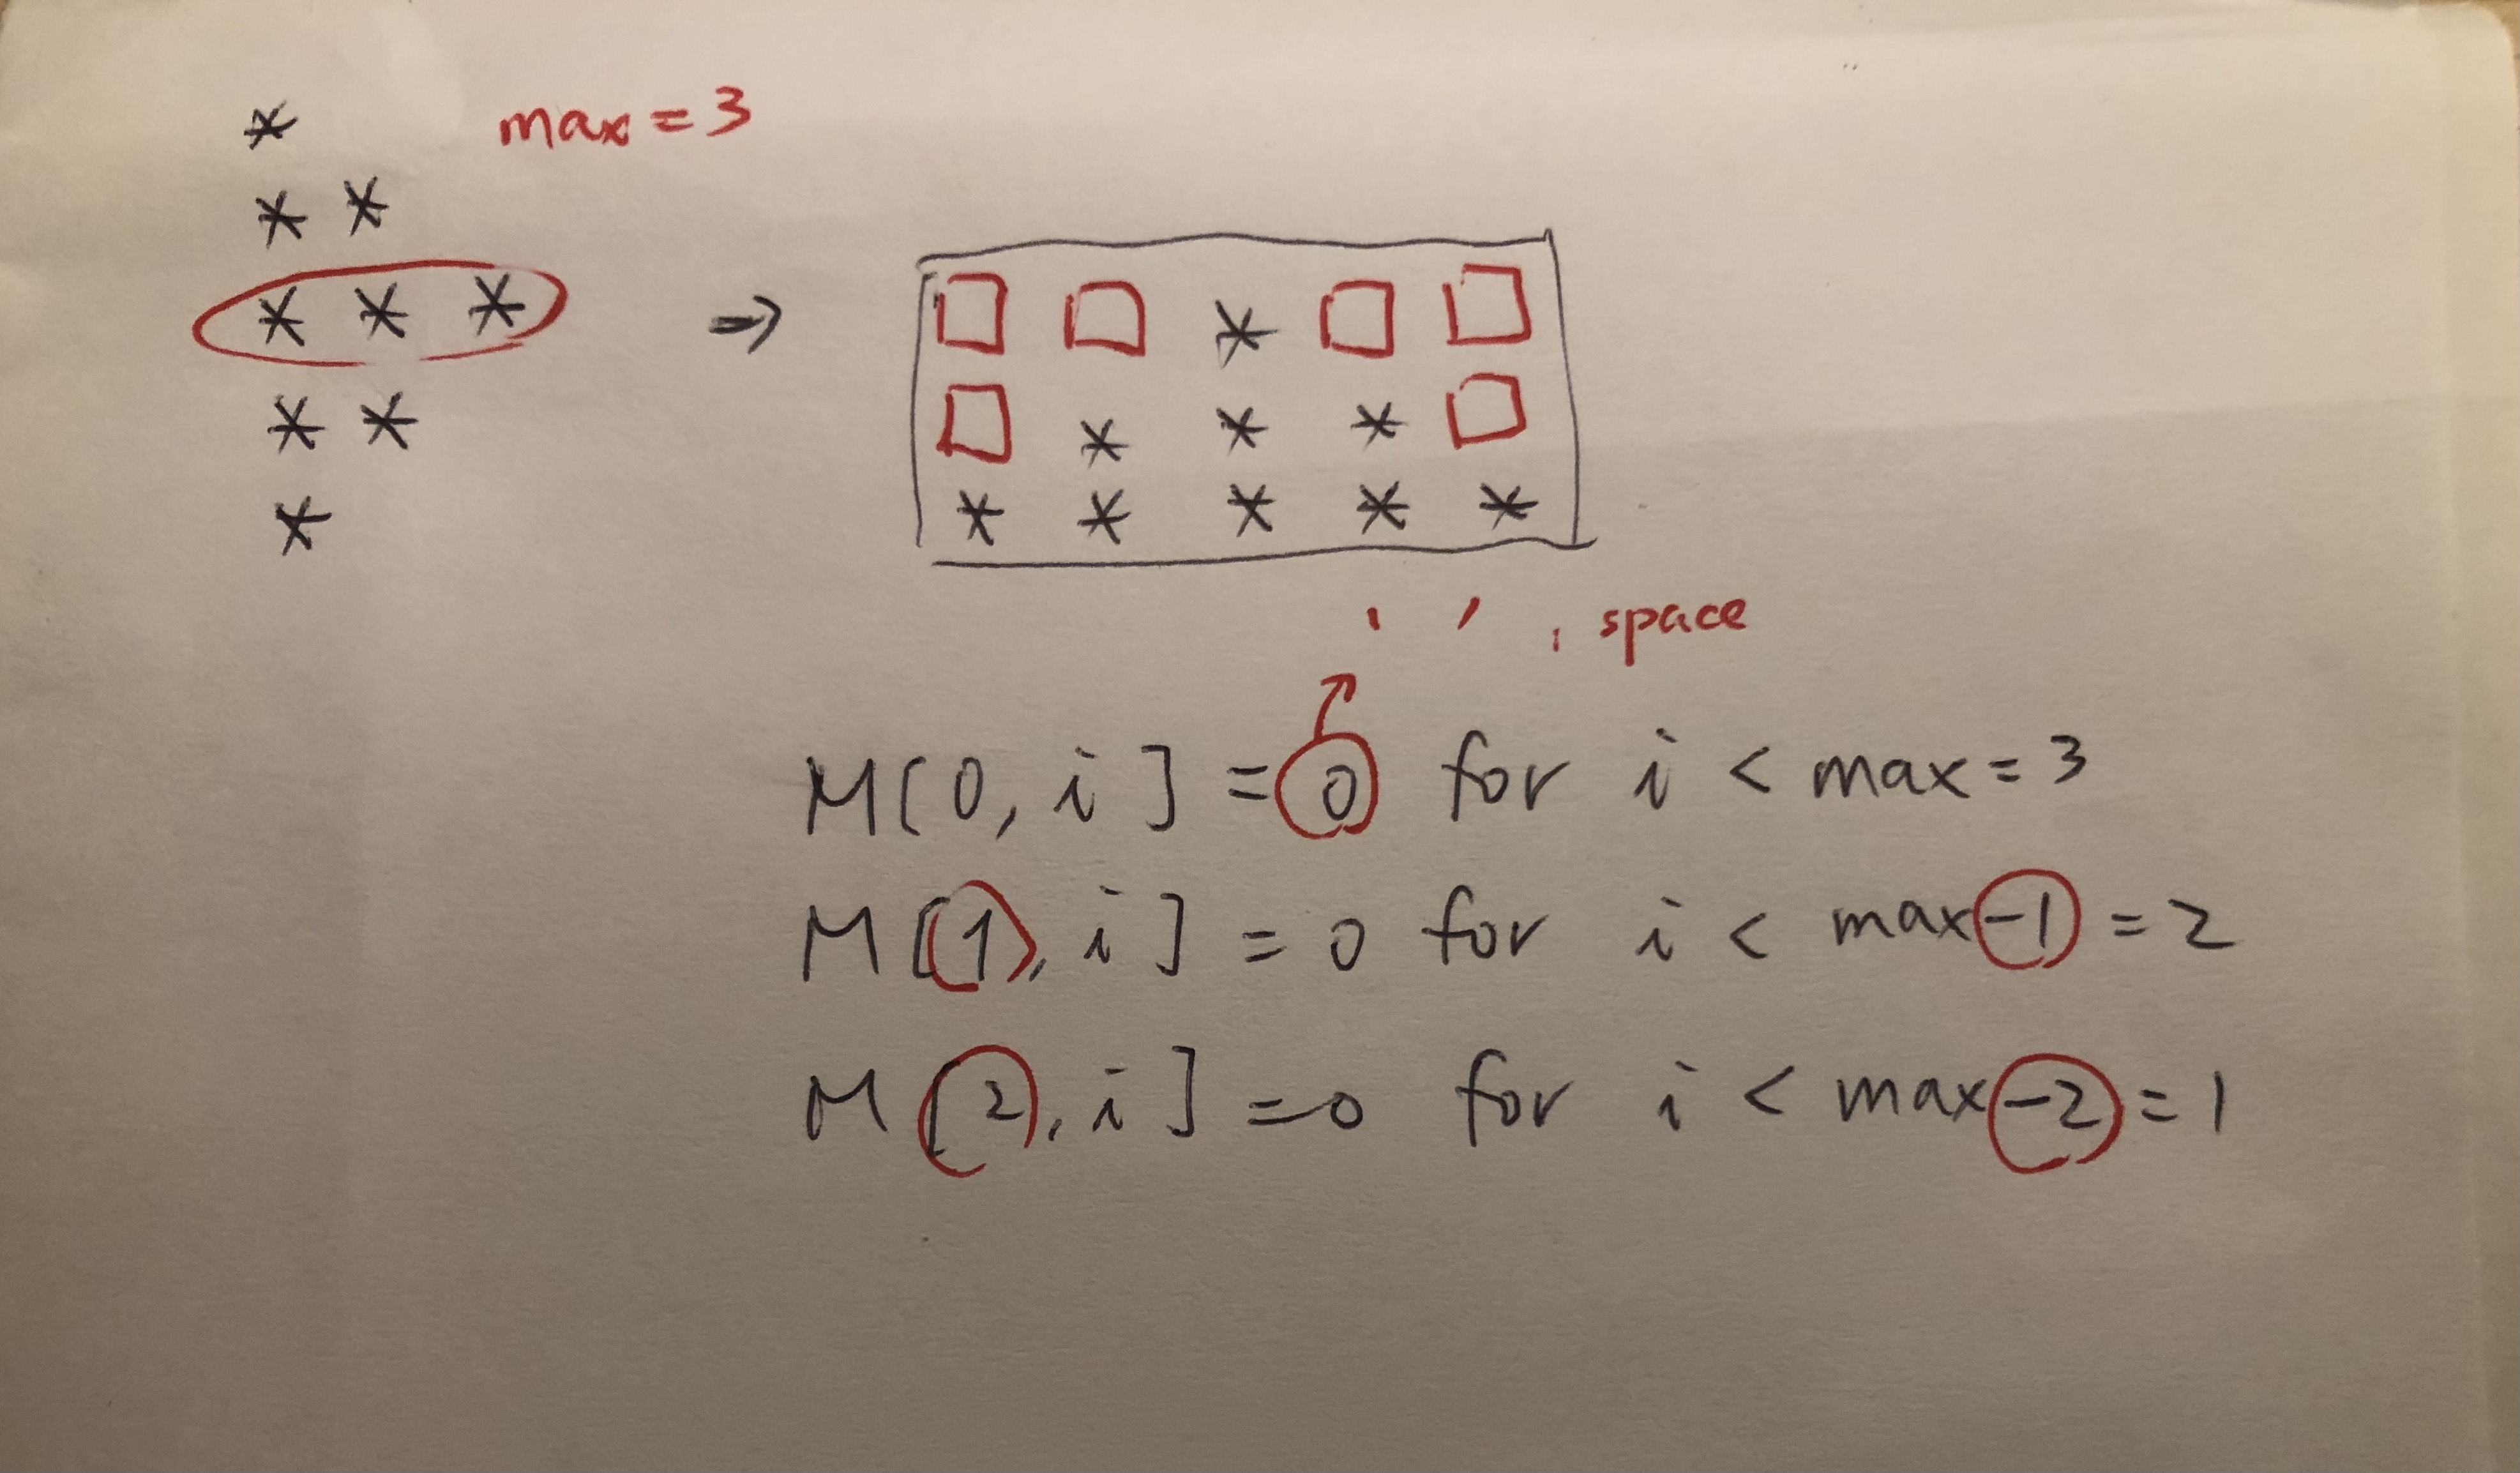 * max = 3
* *
* * *
* *
*
⇒
□ □ * □ □
□ * * * □
* * * * *
' ' , space
M[0, i] = 0 for i < max = 3
M[1, i] = 0 for i < max-1 = 2
M[2, i] = 0 for i < max-2 = 1